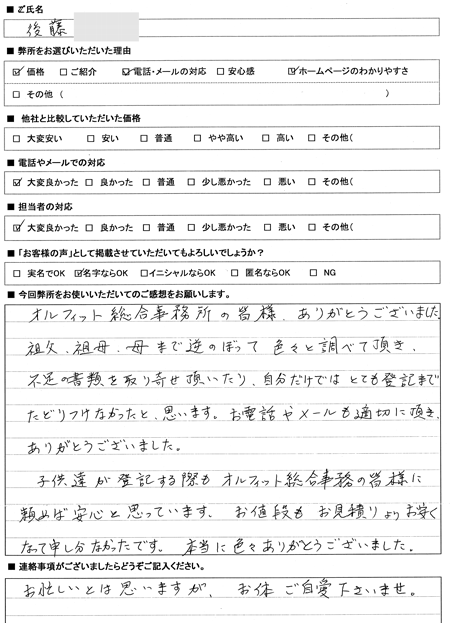 ■ ご氏名
後藤
■ 弊所をお選びいただいた理由
☑ 価格 □ご紹介 ☑電話・メールの対応 □安心感 ☑ホームページのわかりやすさ
□ その他 ( )
■ 他社と比較していただいた価格
□ 大変安い □ 安い □ 普通 □ やや高い □ 高い □ その他(
■ 電話やメールでの対応
☑ 大変良かった □ 良かった □ 普通 □ 少し悪かった □ 悪い □ その他(
■ 担当者の対応
☑大変良かった □ 良かった □ 普通 □ 少し悪かった □ 悪い □ その他(
■「お客様の声」として掲載させていただいてもよろしいでしょうか？
□ 実名でOK ☑名字ならOK □イニシャルならOK □ 匿名ならOK □ NG
■ 今回弊所をお使いいただいてのご感想をお願いします。
オルフィット総合事務所の皆様、ありがとうございました。
祖父、祖母、母まで逆のぼって 色々と調べて頂き、
不足の書類を取り寄せ頂いたり、自分だけでは とても登記まで
たどりつけなかったと、思います。お電話やメールも適切に頂き、
ありがとうございました。
子供達が登記する際も オルフィット総合事務の皆様に
頼めば安心と思っています。 お値段も お見積りよりお安く
なって申し分なかったです。 本当に色々ありがとうございました。
■ 連絡事項がございましたらどうぞご記入ください。
お忙しいとは思いますが、 お体 ご自愛下さいませ。